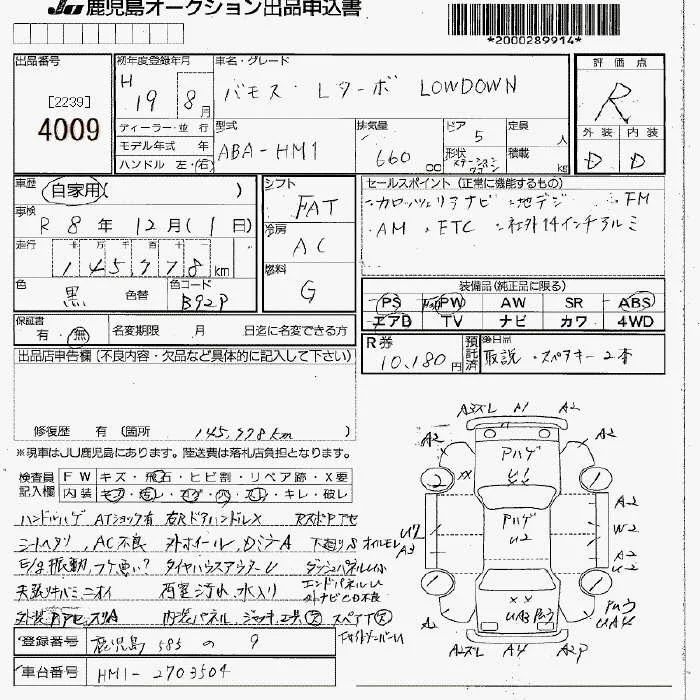 JU 鹿児島オークション出品申込書
*2000289914*
出品番号
[2239]
4009
初年度登録年月
H 19 8月
車名・グレード
バモス・Lターボ LOWDOWN
評価点
R
外装 内装
D D
ディーラー・並行
モデル年式 年
ハンドル 左・右
型式
ABA-HM1
排気量
660 cc
ドア
5
形状
ステーションワゴン
定員
人
積載
kg
車歴
自家用( )
車検
R 8年 12月(1日)
走行
十 万 千 百 十
145,778 km
色
黒
色替
色コード
B92P
シフト
FAT
冷房
AC
燃料
G
セールスポイント(正常に機能するもの)
・カロッツェリアナビ ・地デジ ・FM
・AM ・ETC ・社外14インチアルミ
装備品(純正品に限る)
PS PW AW SR ABS
エアB TV ナビ カワ 4WD
保証書
有・無
名変期限 月 日迄に名変できる方
R券
10,180円
預託済
後日品
取説・スペアキー2本
出品店申告欄(不良内容・欠品など具体的に記入して下さい)
修復歴 有(箇所 145,778km)
※現車はJU鹿児島にあります。陸送費は落札店負担となります。
検査員記入欄
FW キズ・飛石・ヒビ割・リペア跡・X要
内装 キズ・汚レ・コゲ・穴・スレ・キレ・破レ
ハンドルハゲ ATショック有 右RドアハンドルX
シートヘタリ、AC不良 外ホイール、ガラスA 下廻りS オイルモレ
E/g振動、フケ悪い? タイヤハウスアウターU ダッシュパネルU
天張リキバミ、ニオイ 内室汚れ、水入り エンドパネルU
外ナビCD不良
内装パネル、ジャッキ、工具欠 スペアT欠
サイドメンバーU
A3ズレ A1 A2
A2 A2
Pハゲ
U1
XX
2 1
Pハゲ
U2
U2
A3
A2
W2
A2
U2
1 1
XX
UA3
UA4
A2
A2ズレ A4 A2P
登録番号
鹿児島 583 の 9
車台番号
HM1-2703504